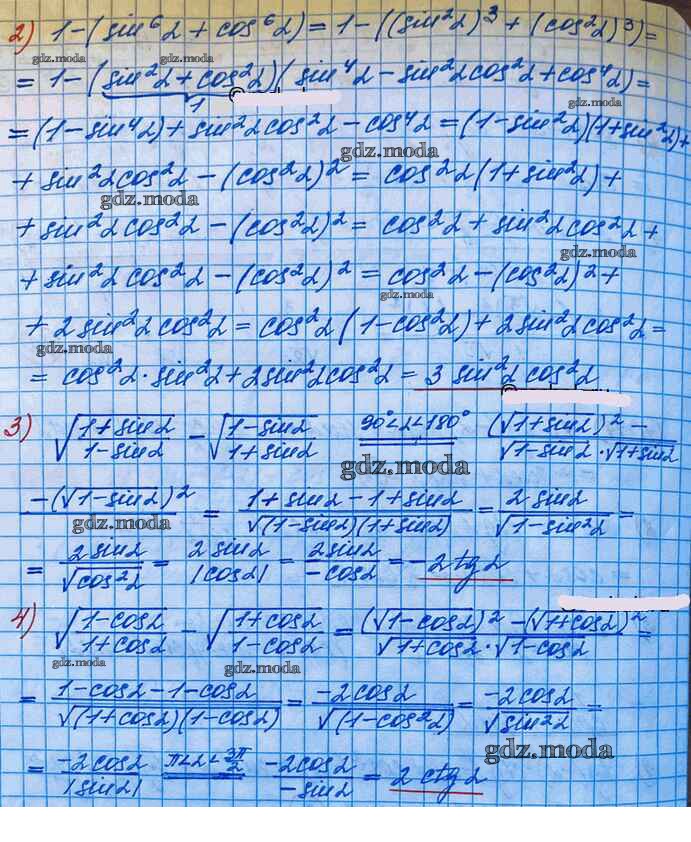 2) 1-(sin⁶α + cos⁶α) = 1-((sin²α)³ + (cos²α)³) =
gdz.moda gdz.moda
= 1-(sin²α + cos²α)(sin⁴α - sin²α cos²α + cos⁴α) =
1 gdz.moda
= (1-sin⁴α) + sin²α cos²α - cos⁴α = (1-sin²α)(1+sin²α) +
gdz.moda
+ sin²α cos²α - (cos²α)² = cos²α (1+sin²α) +
gdz.moda
+ sin²α cos²α - (cos²α)² = cos²α + sin²α cos²α +
gdz.moda
+ sin²α cos²α - (cos²α)² = cos²α - (cos²α)² +
gdz.moda
+ 2 sin²α cos²α = cos²α (1-cos²α) + 2 sin²α cos²α =
gdz.moda
= cos²α · sin²α + 2 sin²α cos²α = 3 sin²α cos²α
3) √((1+sinα)/(1-sinα)) - √((1-sinα)/(1+sinα)) 90°<α<180° = ((√(1+sinα))² -)/(√(1-sinα) · √(1+sinα))
gdz.moda
(-(√(1-sinα))²)/ = (1+sinα-1+sinα)/√((1-sinα)(1+sinα)) = 2sinα/√(1-sin²α) =
gdz.moda
= 2sinα/√(cos²α) = 2sinα/|cosα| = 2sinα/(-cosα) = -2tgα
4) √((1-cosα)/(1+cosα)) - √((1+cosα)/(1-cosα)) = ((√(1-cosα))² - (√(1+cosα))²)/(√(1+cosα) · √(1-cosα)) =
gdz.moda gdz.moda
= (1-cosα-1-cosα)/√((1+cosα)(1-cosα)) = -2cosα/√(1-cos²α) = -2cosα/√(sin²α) =
gdz.moda
= -2cosα/|sinα| π<α<3π/2 = -2cosα/(-sinα) = 2ctgα
gdz.moda